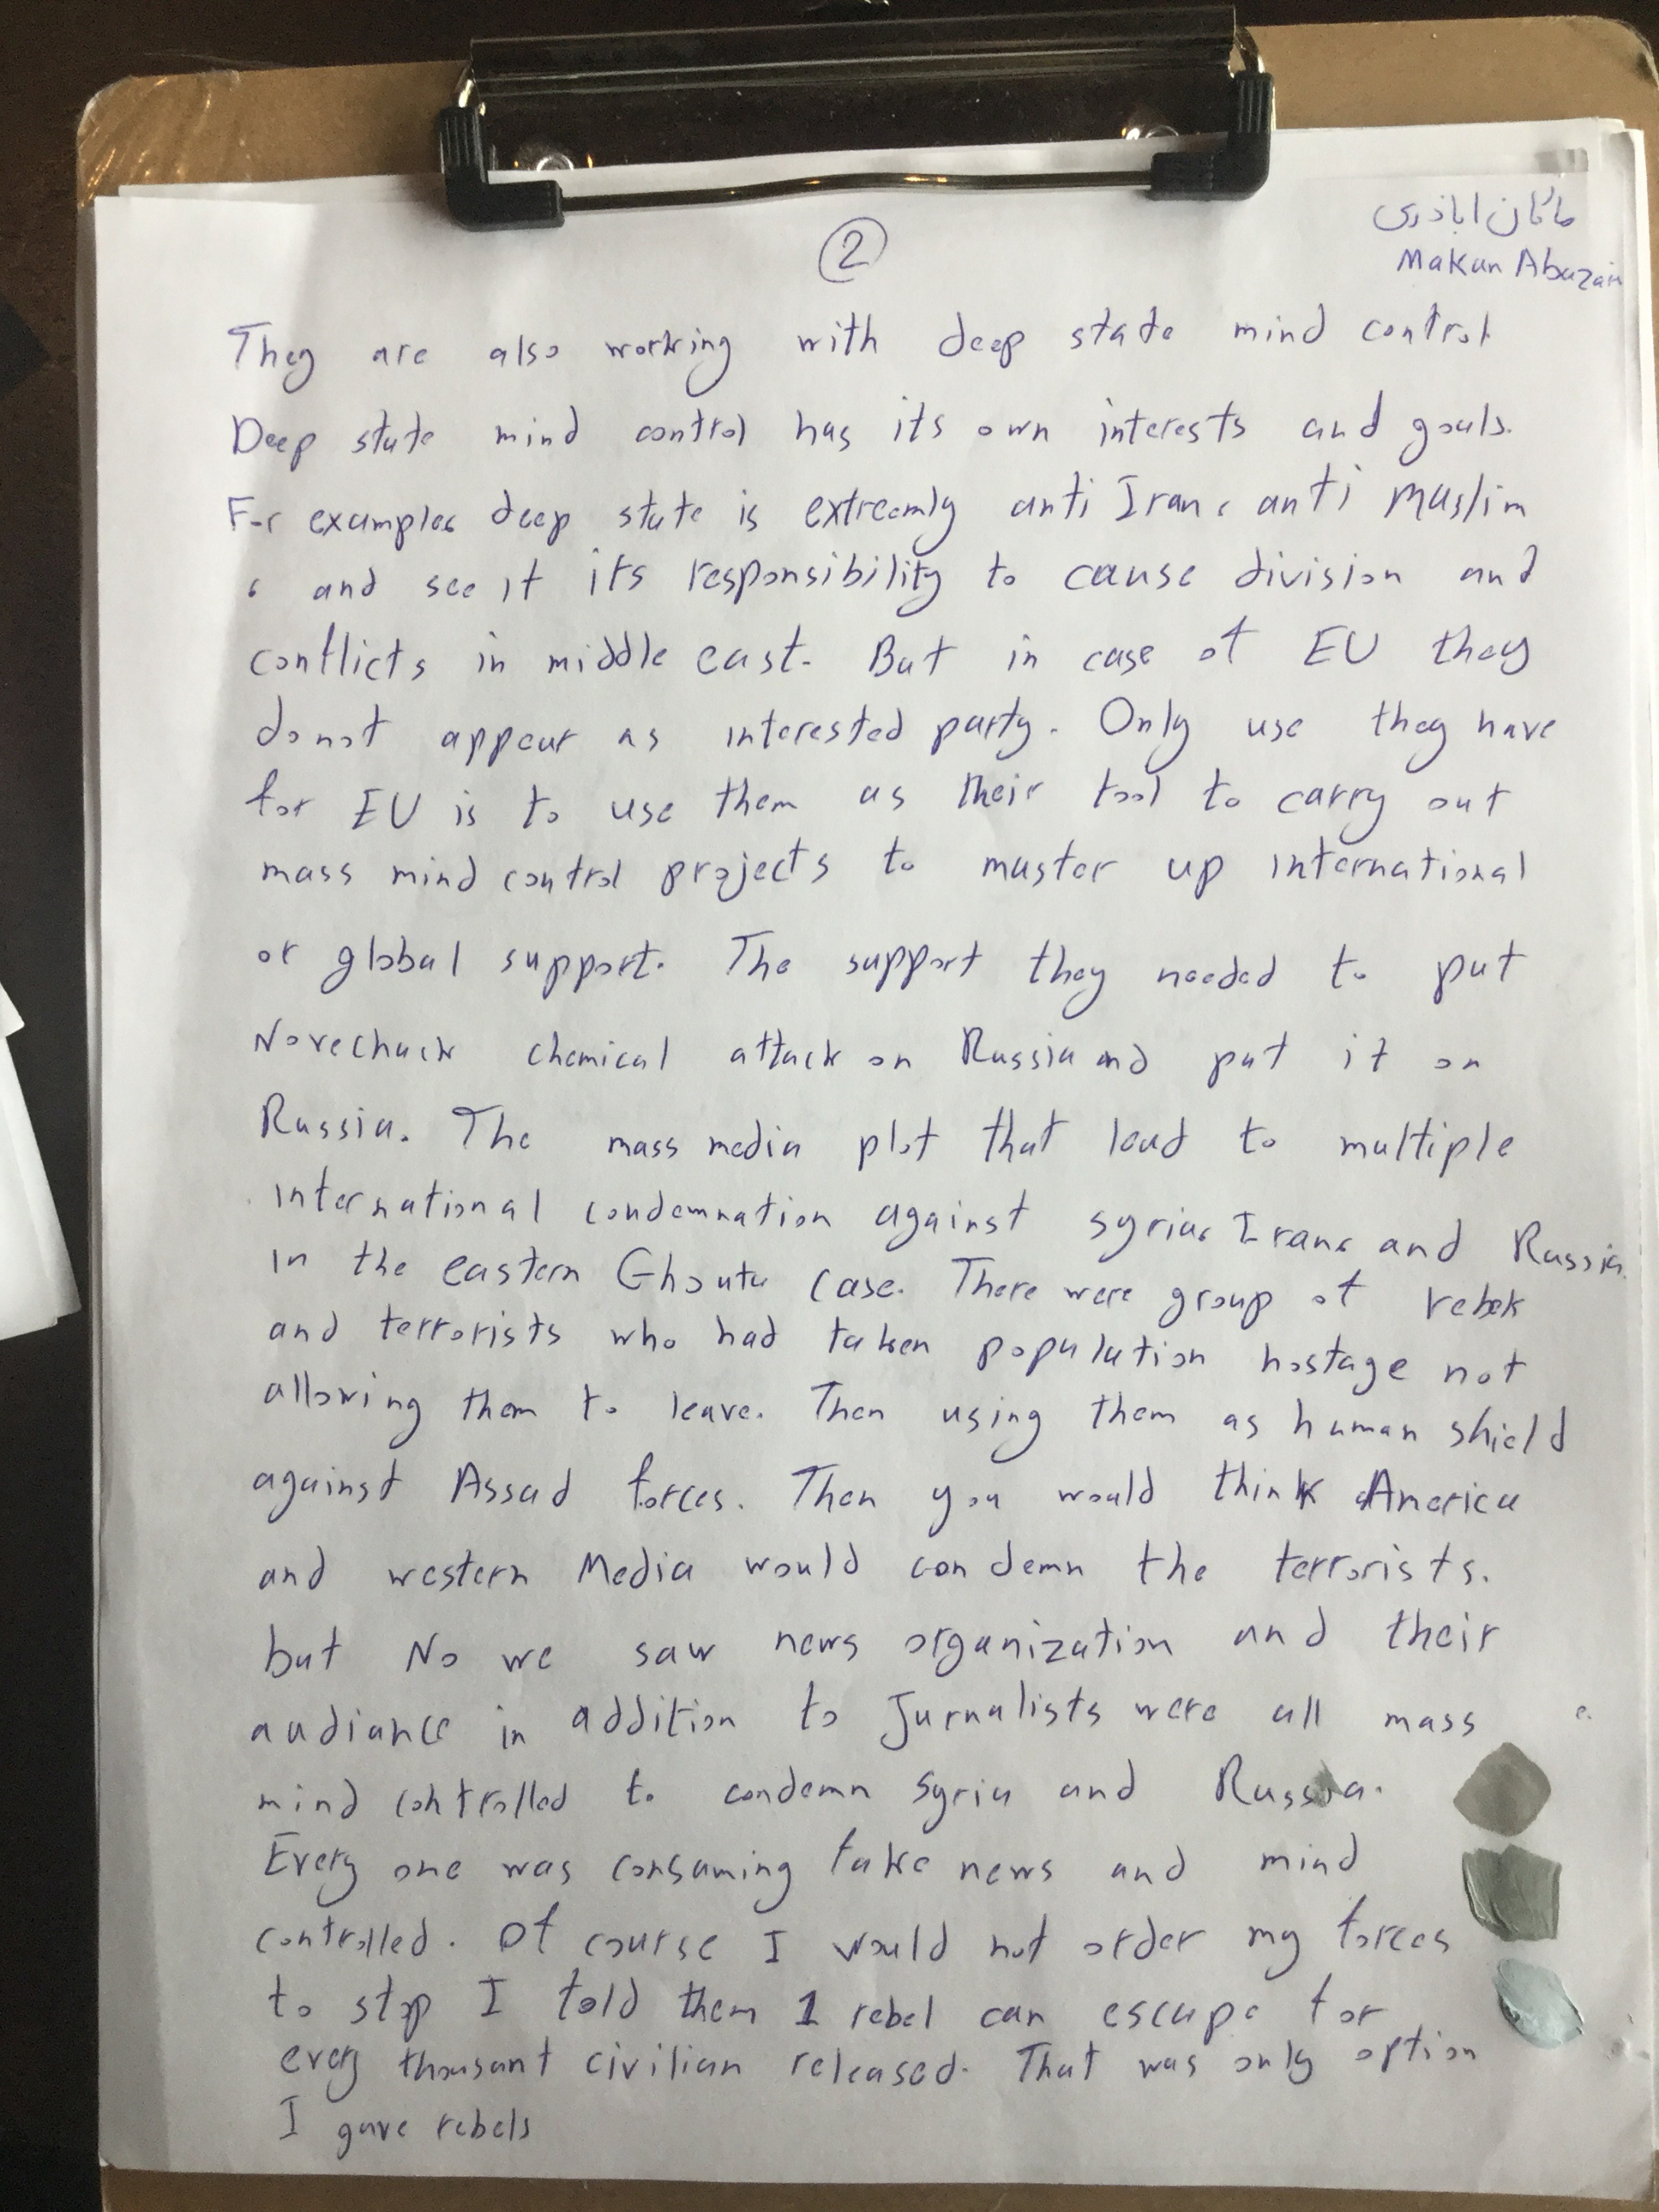 ②
ماکان اباذری
Makan Abazari
They are also working with deep state mind control
Deep state mind control has its own interests and goals.
For examples deep state is extreemly anti Iran, anti Muslim
, and see it its responsibility to cause division and
conflicts in middle east. But in case of EU they
donot appear as interested party. Only use they have
for EU is to use them as their tool to carry out
mass mind control projects to muster up international
or global support. The support they needed to put
Novechuck chemical attack on Russia and put it on
Russia. The mass media plot that lead to multiple
international condemnation against syria, Iran, and Russia
in the eastern Ghouta case. There were group of rebels
and terrorists who had taken population hostage not
allowing them to leave. Then using them as human shield
against Assad forces. Then you would think America
and western Media would condemn the terrorists.
but No we saw news organization and their
audiance in addition to Jurnalists were all mass
mind controlled to condemn Syria and Russia.
Every one was consuming fake news and mind
controlled. Of course I would not order my forces
to stop I told them 1 rebel can escape for
every thousant civilian released. That was only option
I gave rebels